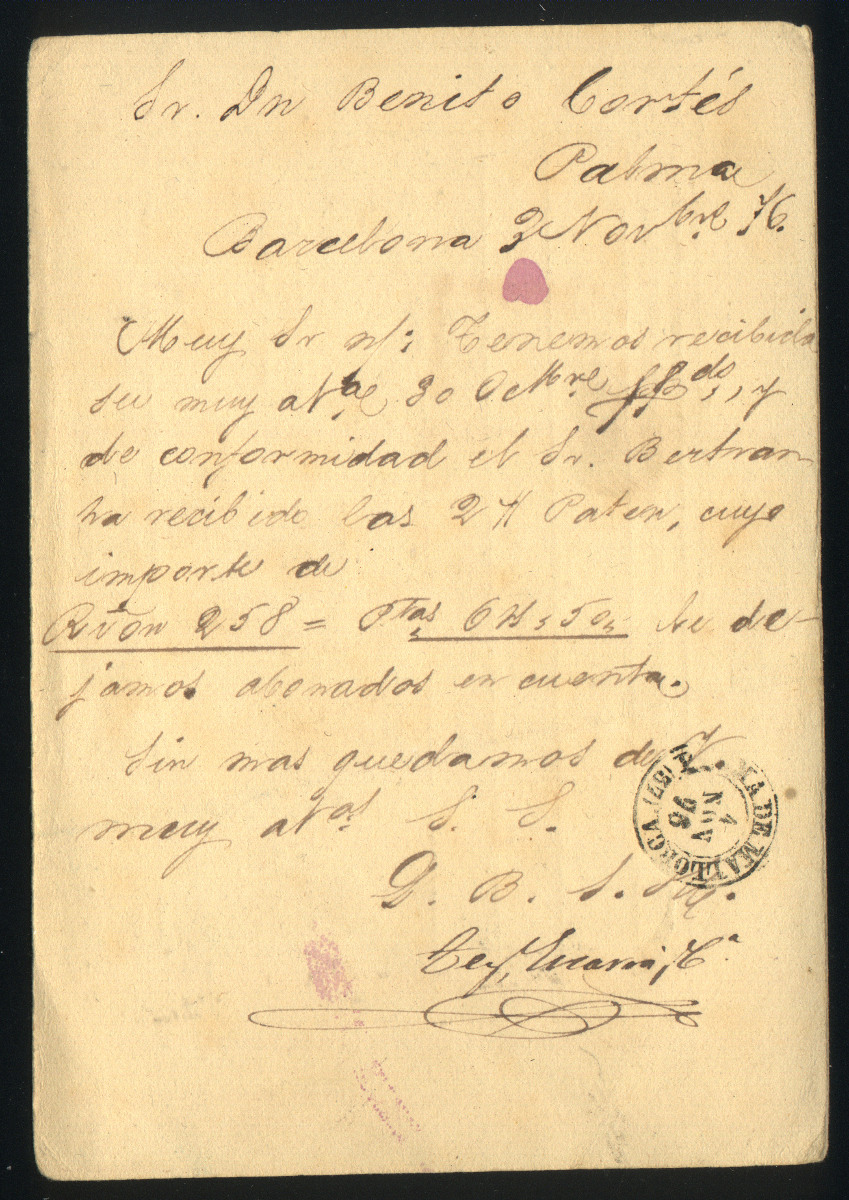 Sr. Dn Benito Cortés
Palma
Barcelona 3 Novbre 76.
Muy Sr n/: Tenemos recibida
su muy atta 30 Octbre ppdo, y
de conformidad el Sr. Bertran
ha recibido las 24 Paten, cuyo
importe de
Rvon 258 = Ptas 64,50, le de-
jamos abonados en cuenta.
Sin mas quedamos de V.
muy atos S. S.
Q. B. S. M.
Cª
MA DE MALLORCA
4
NOV
76